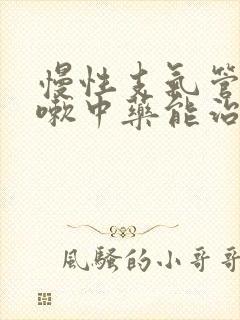 慢性支氣管
嗽中藥能治
風騷的小哥哥